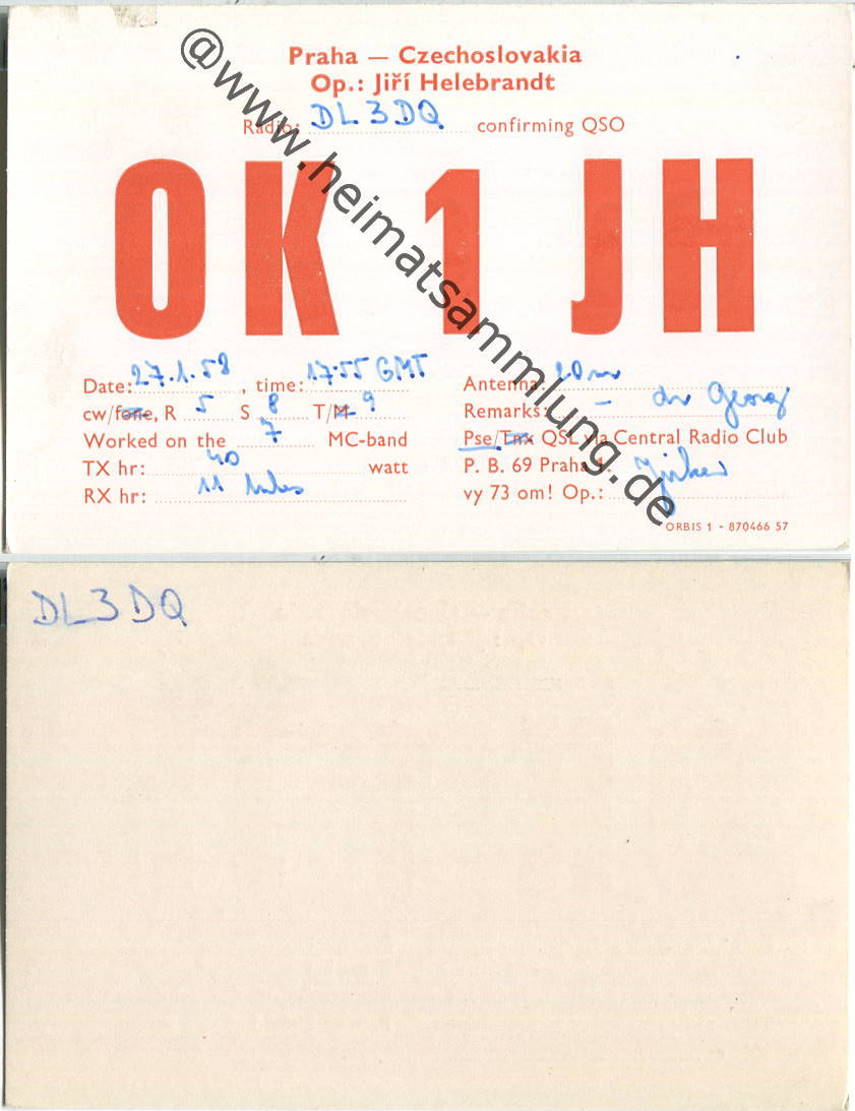 Praha — Czechoslovakia
Op.: Jiří Helebrandt
Radio: DL3DQ confirming QSO
OK 1 JH
Date: 27.1.58, time: 17.55 GMT
cw/fone, R 5 S 8 T/M 9
Worked on the 7 MC-band
TX hr: 40 watt
RX hr: 11 tubes
Antenna: 20m
Remarks: – dr Georg
Pse/Tnx QSL via Central Radio Club
P. B. 69 Praha 1.
vy 73 om! Op.:
ORBIS 1 - 870466 57
@www.heimatsammlung.de
DL3DQ